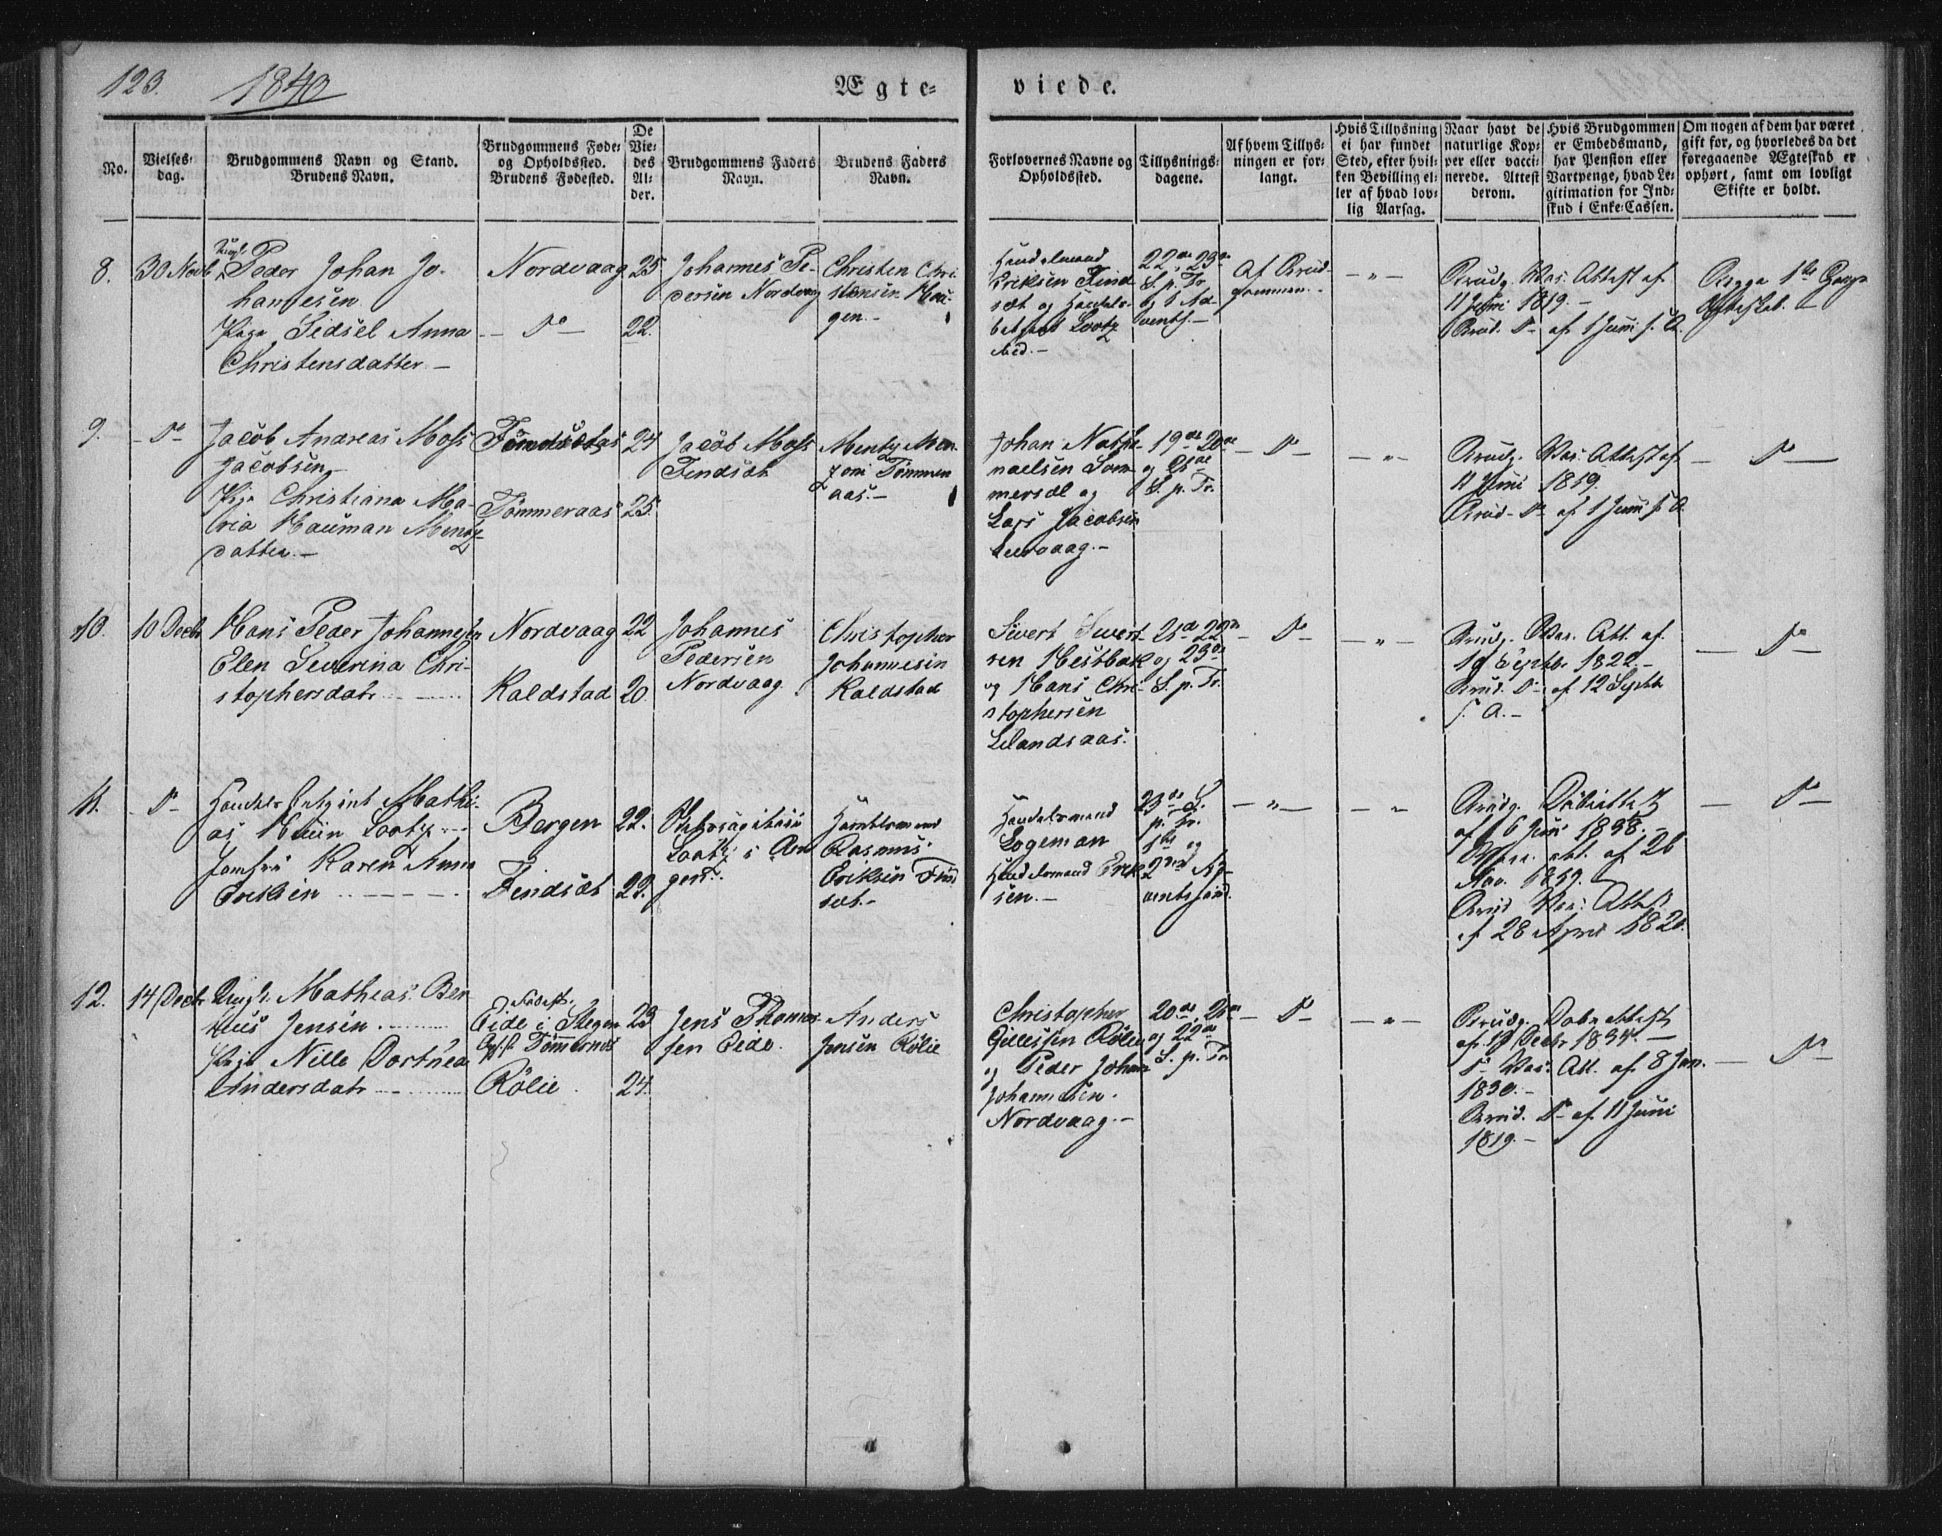 123. 1840 Ægte=viede.
No.
Vielses-
dag.
Brudgommens Navn og Stand.
Brudens Navn.
Brudgommens Føde-
og Opholdssted.
Brudens Fødested.
De
Vie-
des
Al-
der.
Brudgommens Faders
Navn.
Brudens Faders
Navn.
Forlovernes Navne og
Opholdssted.
Tillysnings-
dagene.
Af hvem Tillys-
ningen er for-
langt.
Hvis Tillysning
ei har fundet
Sted, efter hvil-
ken Bevilling el-
ler af hvad lov-
lig Aarsag.
Naar havt de
naturlige Kop-
per eller vacci-
nerede. Attest
derom.
Hvis Brudgommen
er Embedsmand,
har Pension eller
Vartpenge, hvad Le-
gitimation for Ind-
skud i Enke-Cassen.
Om nogen af dem har været
gift før, og hvorledes da det
foregaaende Ægteskab er
ophørt, samt om lovligt
Skifte er holdt.
8.
30 Novb
Ungk.
Peder Johan Jo-
hannesen
Pige Sidsel Anna
Christensdatter.—
Nordvaag
— Do —
25
22.
Johannes Pe-
dersen Nordvaag
Christen Chri-
stensen
gen.—
Handelsmand
Eriksen Find
sæt og Handels-
betjent Lootz
22de, 23de
S. p. Tr.
og 1 Ad-
vents.—
Af Brud-
gommen.—
— " —
Brudg. Vac. Attest af
11 Juni 1819.—
Brud. Do af 1 Juni s. A.
Begge 1ste Gangs
Ægteskab.—
9.
— Do
Jacob Andreas Moss
Jacobsen
Pige Christiana Ma-
ria Hauman Mentz-
datter.—
Tømmeraas
24
25
Jacob Moss
Findsæt
Mentz Men-
Tømmer
aas.—
Johan Natha-
naelsen Som-
mersæl og
Lars Jacobsen
19de 20de
og 21de
S. p. Tr.
— Do —
— " —
Brudg. Vac. Attest af
11 Juni 1819.
Brud. Do af 1 Juni s. A.
— Do —
10.
10 Decbr
Hans Peder Johannesen
Elen Severina Chri-
stophersdatr
Nordvaag
Kaldstad
22
20.
Johannes
Pedersen
Nordvaag.
Christopher
Johannesen
Kaldstad
Sivert Sivert-
sen Hestbak
og Hans Chri-
stophersen
Lelandsaas.
21de 22de
og 23de
S. p. Tr.
— Do —
— " —
Brudg. Vac. Att. af
19 Septbr 1820.—
Brud. Do af 12 Septbr
s. A.—
— Do —
11.
Do
Handels Mathi-
as Lootz
Jomfru Karen Anna
Eriksen
Bergen
Findsæt
22.
22.
Lootz i Ber-
gen.
Handelsmand
Rasmus
Eriksen Find
sæt.—
Handelsmand
Logeman
Handelsmand Erik-
sen.—
23de S.
p. Tr.
1ste og
2den Ad-
ventssønd.
— " —
— " —
Brudg. Døbeattest
af 16 Juni 1838.
Vacc. att. af 26
Nov. 1819.
Brud Vac. Attest
af 28 April 1820.
— Do —
12.
14 Decbr
Ungk. Mathias Ber
Jensen
Pige Nille Dorthea
Andersdatr
Fødest.
Eide i Stegen
Opst. Tømmernæs
Rølie.
23
24.
Jens Thomas-
sen Eide.
Anders
Jensen Rølie
Christopher
Gillessen Rølie
og Peder Johan
Johannesen
Nordvaag.—
20de, 21de
og 22de
S. p. Tr.
— Do —
— " —
Brudg. Døbeattest
af 19 Decbr 1834.
Do Vac. Att. af 8 Jan.
1830.—
Brud. Do af 11 Juni
1819.—
— Do —